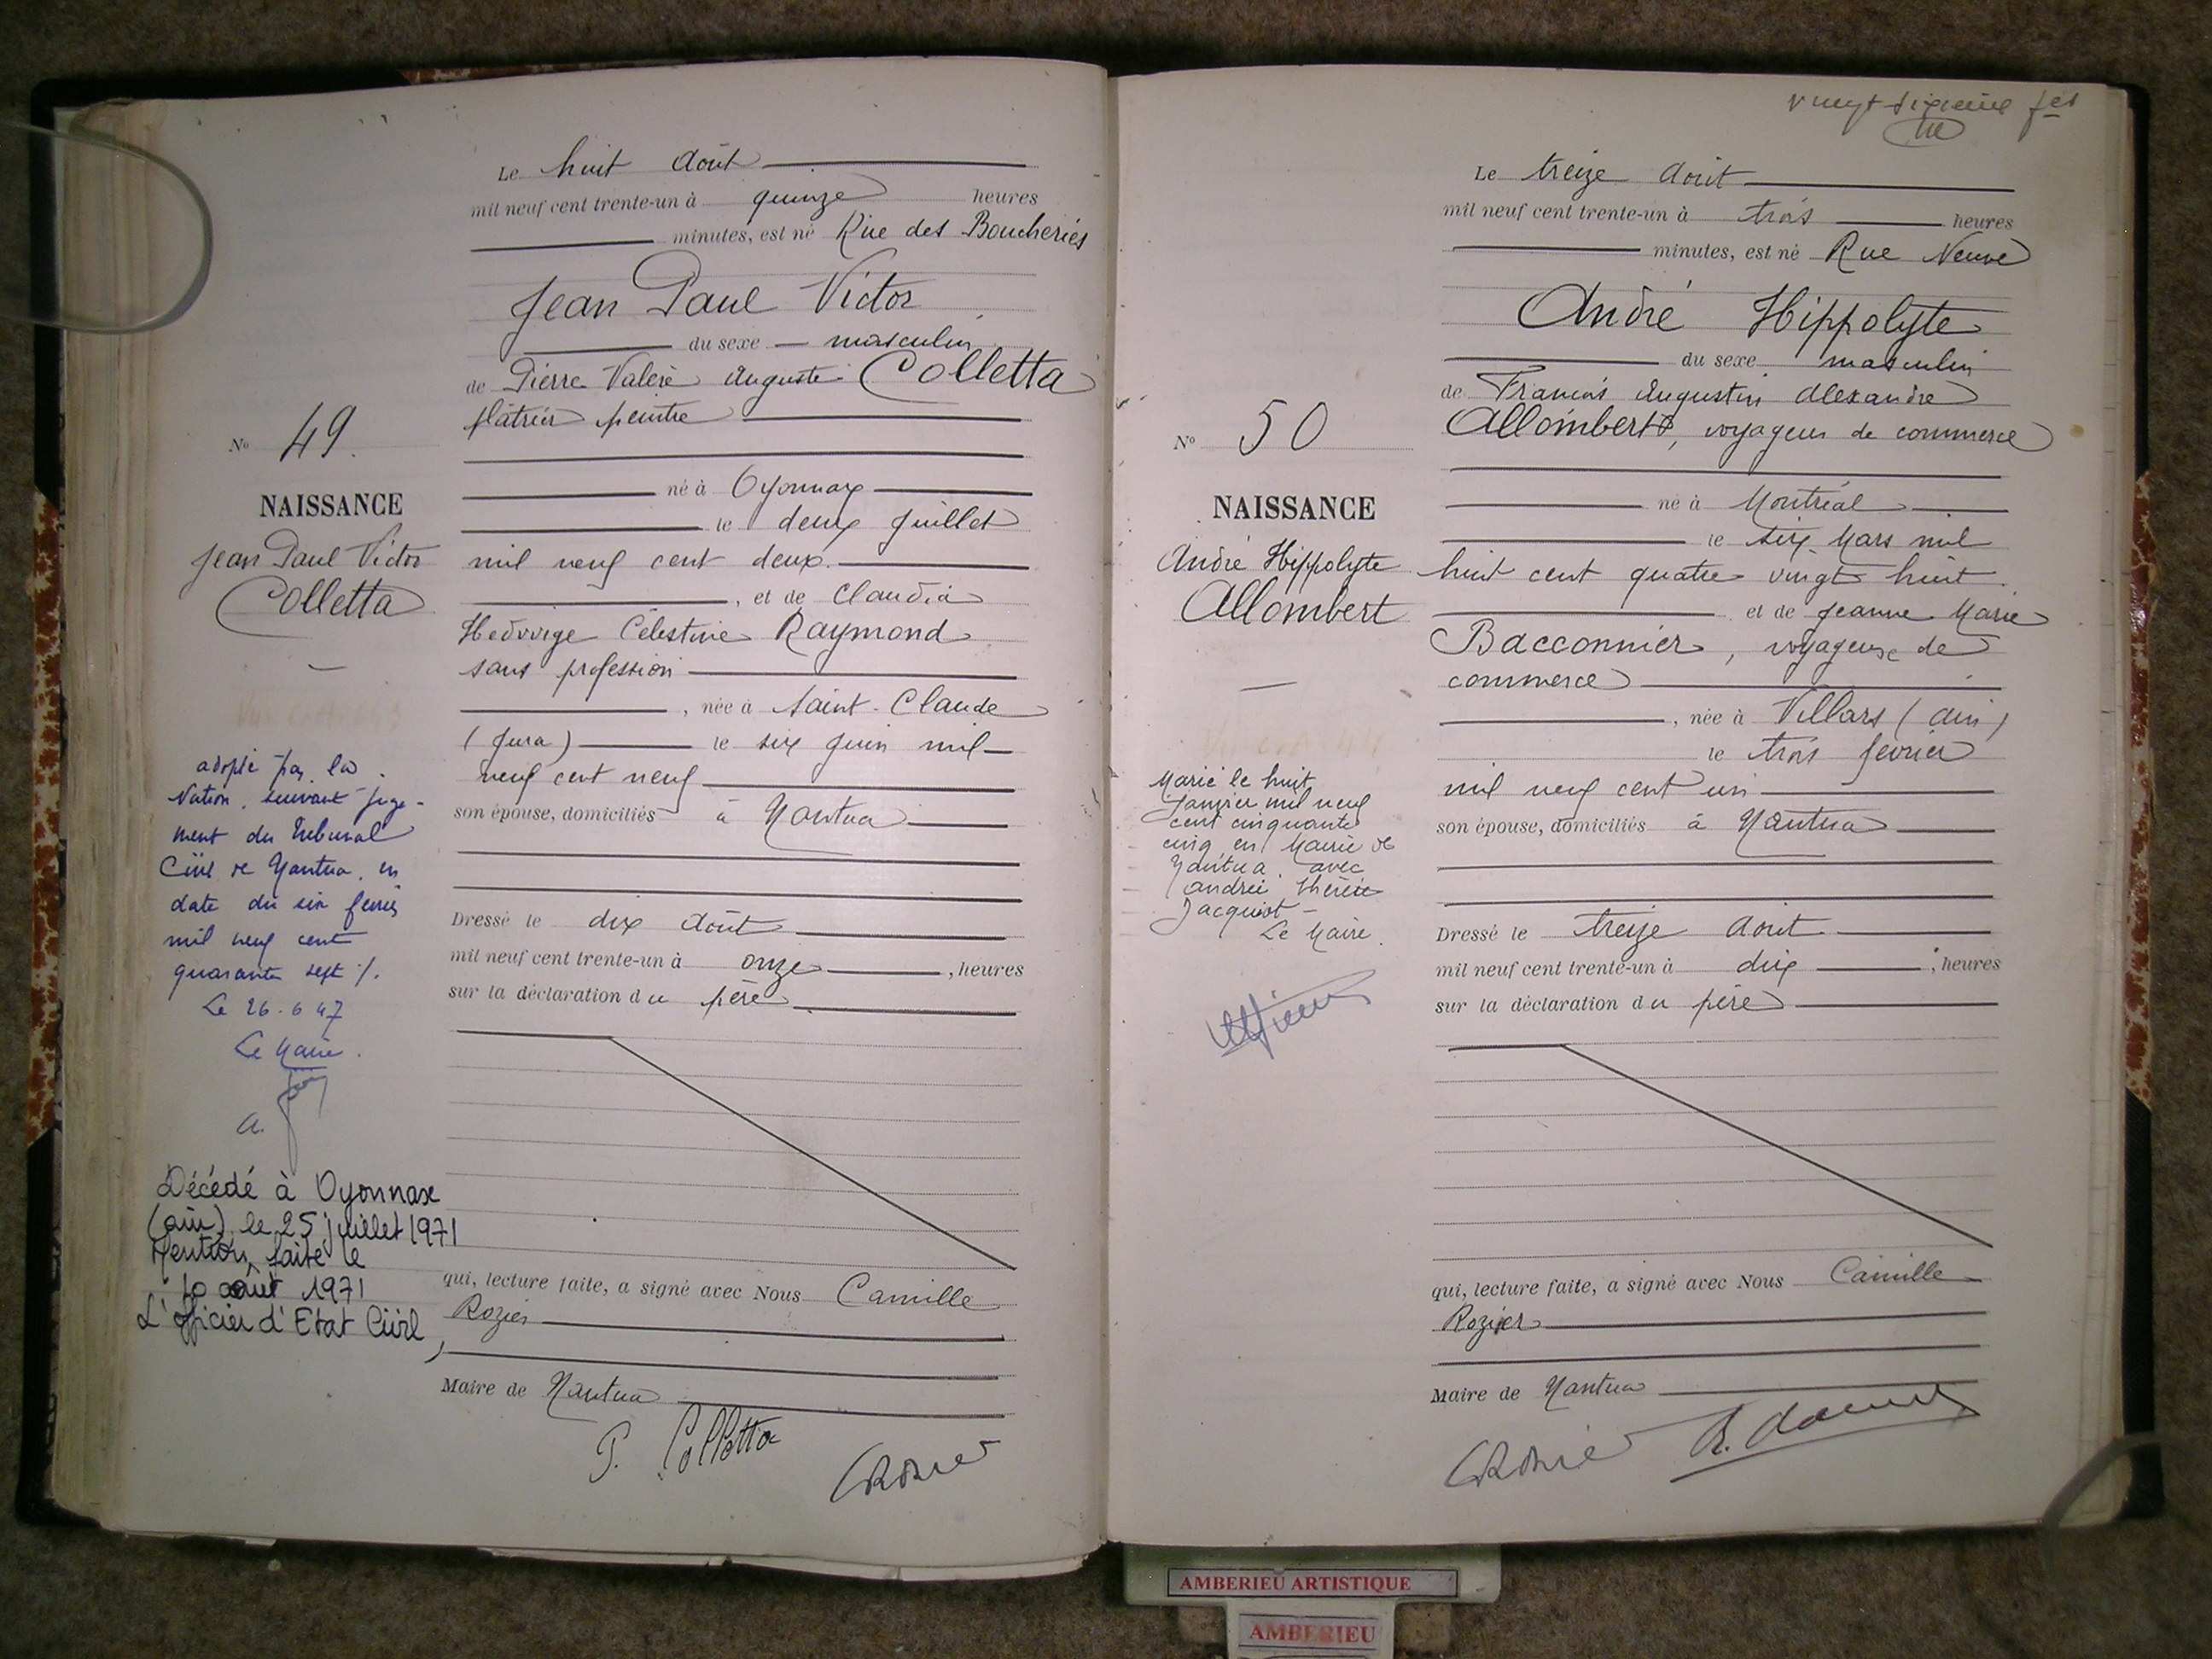 Le huit Août
mil neuf cent trente-un à quinze heures
minutes, est né Rue des Boucheries
Jean Paul Victor
du sexe masculin
de Pierre Valère Auguste Colletta
plâtrier peintre
né à Oyonnax
le deux Juillet
mil neuf cent deux.
, et de Claudia
Hedwige Célestine Raymond
sans profession
, née à Saint-Claude
(Jura) le six Juin mil
neuf cent neuf
son épouse, domiciliés à Nantua
Dressé le dix Août
mil neuf cent trente-un à onze , heures
sur la déclaration du père
qui, lecture faite, a signé avec Nous Camille
Rozier
Maire de Nantua
P. Colletta
No 49.
NAISSANCE
Jean Paul Victor
Colletta
adopté par la
Nation, suivant juge-
ment du Tribunal
Civil de Nantua, en
date du six février
mil neuf cent
quarante sept ./.
Le 26.6 47
Le Maire.
Décédé à Oyonnax
(ain), le 25 juillet 1971
Mention faite le
10 août 1971
L'officier d'Etat Civil,
vingt sixième fet
Le treize Août
mil neuf cent trente-un à trois heures
minutes, est né Rue Neuve
André Hippolyte
du sexe masculin
de François Augustin Alexandre
Allombert, voyageur de commerce
né à Montréal
le six Mars mil
huit cent quatre vingt huit.
et de Jeanne Marie
Bacconnier, voyageuse de
commerce
, née à Villars (Ain)
le trois février
mil neuf cent un
son épouse, domiciliés à Nantua
Dressé le treize Août
mil neuf cent trente-un à dix , heures
sur la déclaration du père
qui, lecture faite, a signé avec Nous Camille
Rozier
Maire de Nantua
No 50
NAISSANCE
André Hippolyte
Allombert
Marié le huit
Janvier mil neuf
cent cinquante
cinq en Mairie de
Nantua avec
Andrée Thérèse
Jacquiot
Le Maire.
AMBERIEU ARTISTIQUE
AMBERIEU